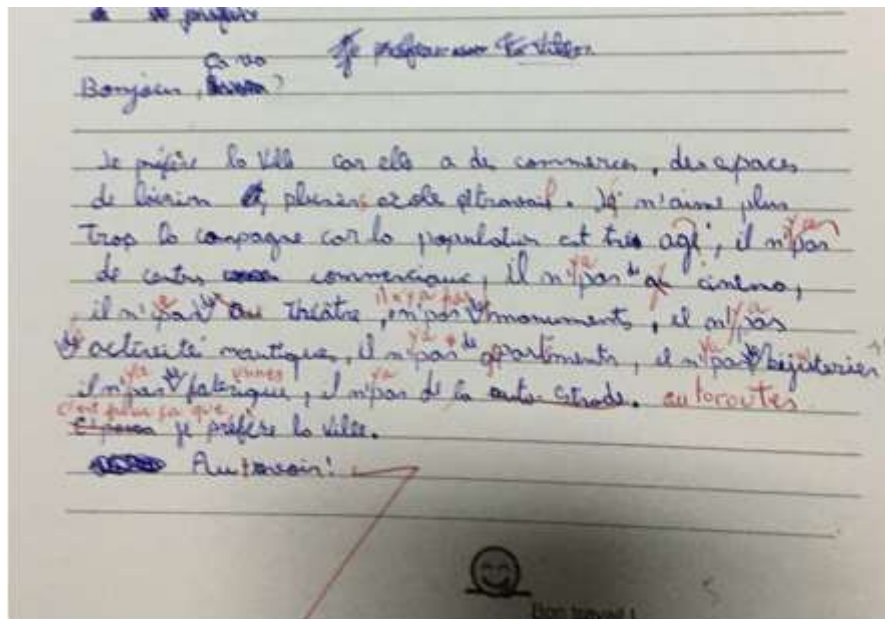 je préfère
Je préfère la ville
ça va
Bonjour, ?
Je préfère la ville car elle a des commerces, des espaces
de loisirs et, plusieurs école et travail. Je n'aime plus
trop la campagne car la population est très agé, il n'y a pas
de centres commerciaux, il n'y a pas de cinéma,
il n'y a pas de théâtre, il n'y a pas de monuments, il n'y a pas
de activité nautique, il n'y a pas de apartiments, il n'y a pas de bijouterie
il n'y a pas de fabrique, il n'y a pas de la auto-strade. autoroutes
c'est pour ça que je préfère la ville.
Au revoir!
Bon travail !